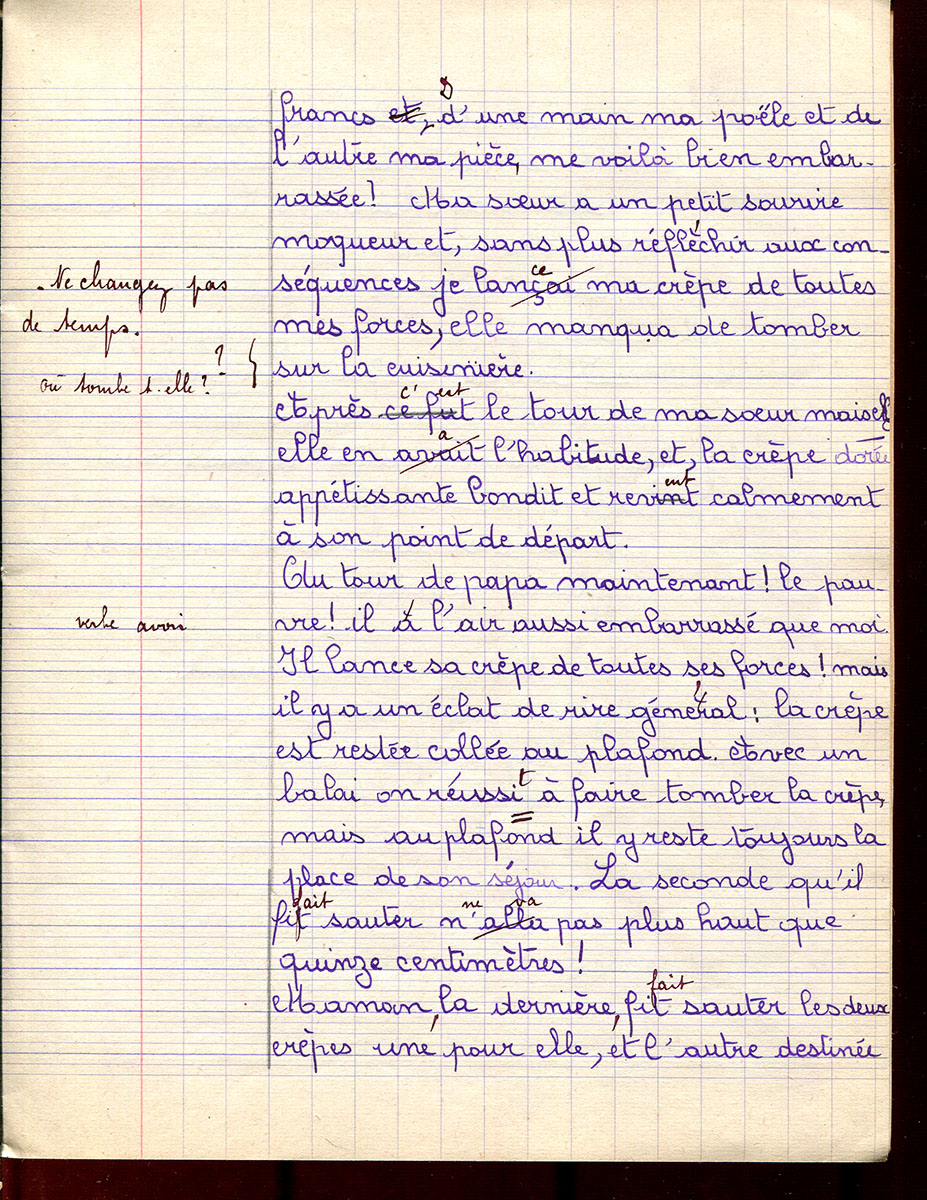 D
francs et, d'une main ma poële et de
l'autre ma pièce, me voilà bien embar-
rassée! Ma sœur a un petit sourire
moqueur et, sans plus réfléchir aux con-
séquences je lançai ma crèpe de toutes
ce
- Ne changez pas
de temps.
mes forces, elle manqua de tomber
sur la cuisinière.
?
où tombe t-elle?
c'est
Après ce fut le tour de ma sœur mais
a
elle en avait l'habitude, et, la crèpe dorée
ent
appétissante bondit et revint calmement
à son point de départ.
Au tour de papa maintenant! le pau-
verbe avoir
vre! il à l'air aussi embarrassé que moi.
Il lance sa crèpe de toutes ses forces! mais
il y a un éclat de rire général: la crèpe
est restée collée au plafond. Avec un
t
balai on réussi à faire tomber la crèpe,
mais au plafond il y reste toujours la
place de son séjour. La seconde qu'il
fait ne va
fit sauter n'alla pas plus haut que
quinze centimètres!
fait
Maman, la dernière, fit sauter les deux
crèpes une pour elle, et l'autre destinée